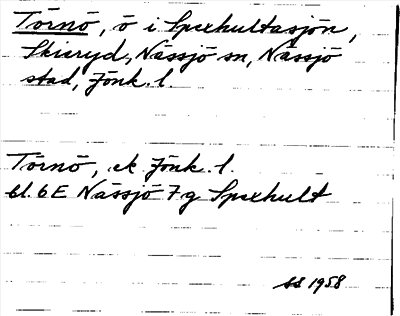 Törnö, ö i Spexhultasjön,
Skieryd, Nässjö sn, Nässjö
stad, Jönk. l.
Törnö, ek Jönk. l.
bl. 6E Nässjö 7g Spexhult
SS 1958